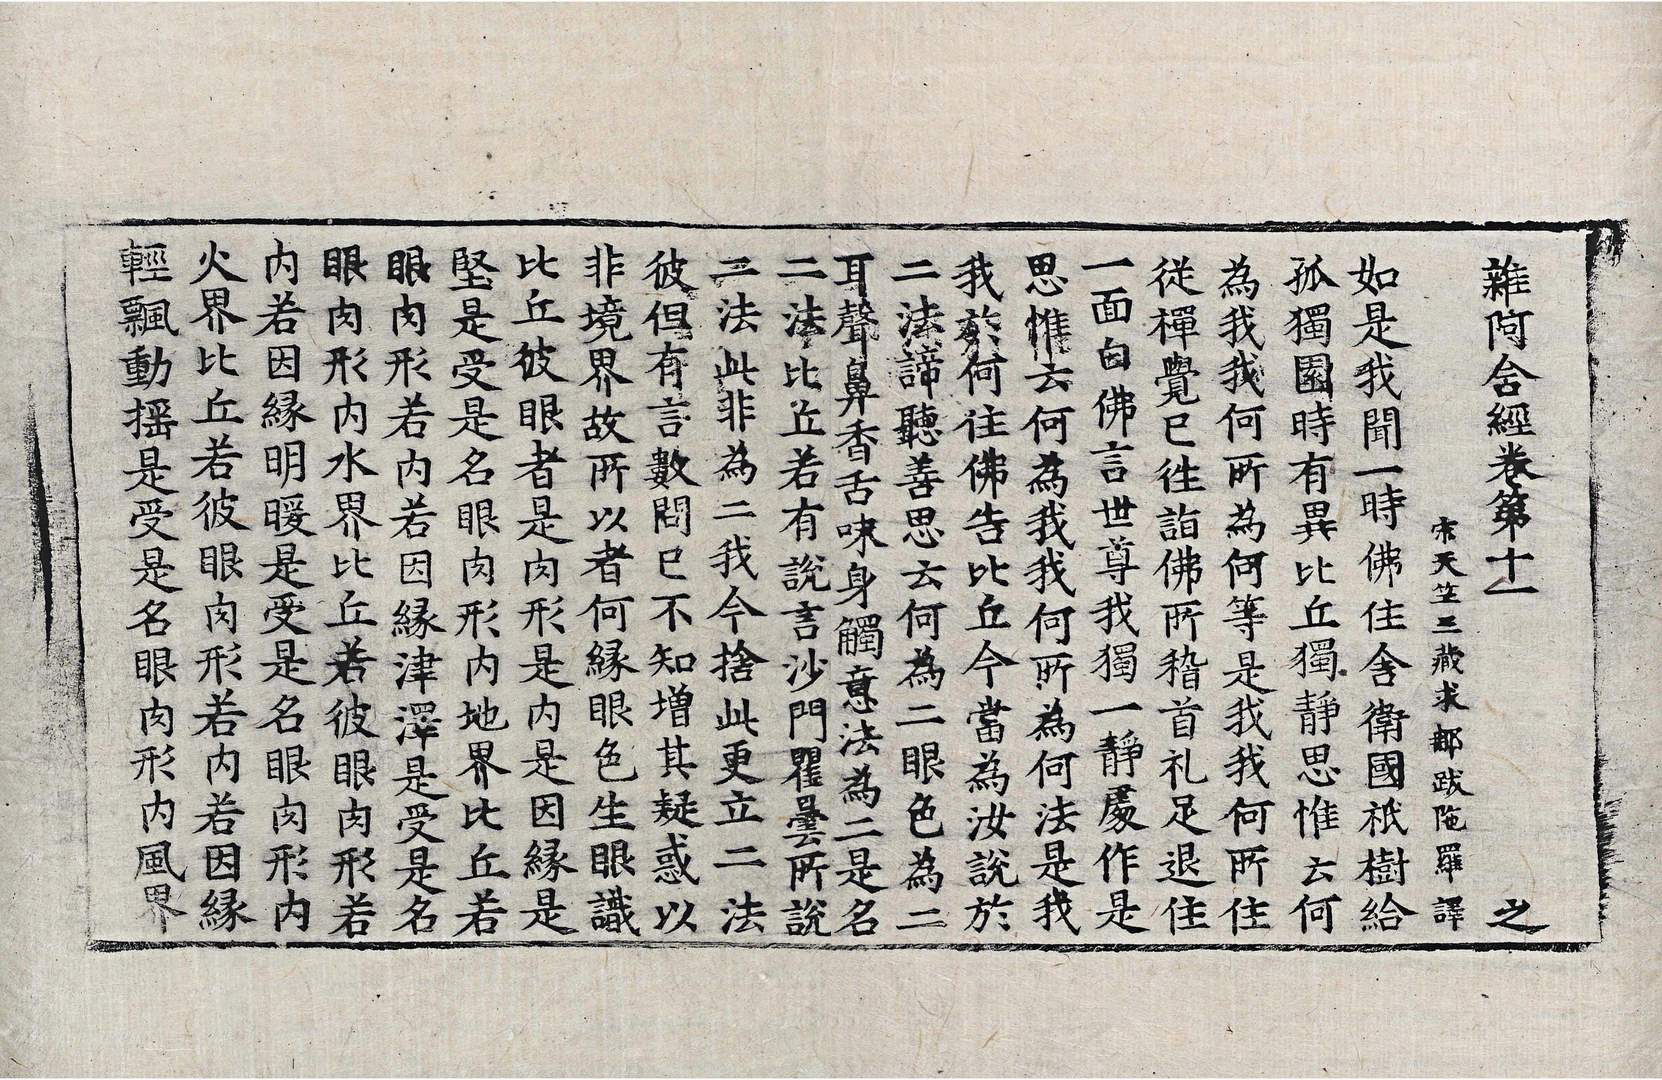 雜阿含經卷第十一　之
宋天竺三藏求那跋陁羅譯
如是我聞一時佛住舍衛國祇樹給
孤獨園時有異比丘獨靜思惟云何
為我我何所為何等是我我何所住
從禪覺已往詣佛所稽首礼足退住
一面白佛言世尊我獨一靜處作是
思惟云何為我我何所為何法是我
我於何住佛告比丘今當為汝說於
二法諦聽善思云何為二眼色為二
耳聲鼻香舌味身觸意法為二是名
二法比丘若有說言沙門瞿曇所說
二法此非為二我今捨此更立二法
彼但有言數問已不知增其疑惑以
非境界故所以者何緣眼色生眼識
比丘彼眼者是肉形是内是因緣是
堅是受是名眼肉形内地界比丘若
眼肉形若内若因緣津澤是受是名
眼肉形内水界比丘若彼眼肉形若
内若因緣明暖是受是名眼肉形内
火界比丘若彼眼肉形若内若因緣
輕飄動搖是受是名眼肉形内風界